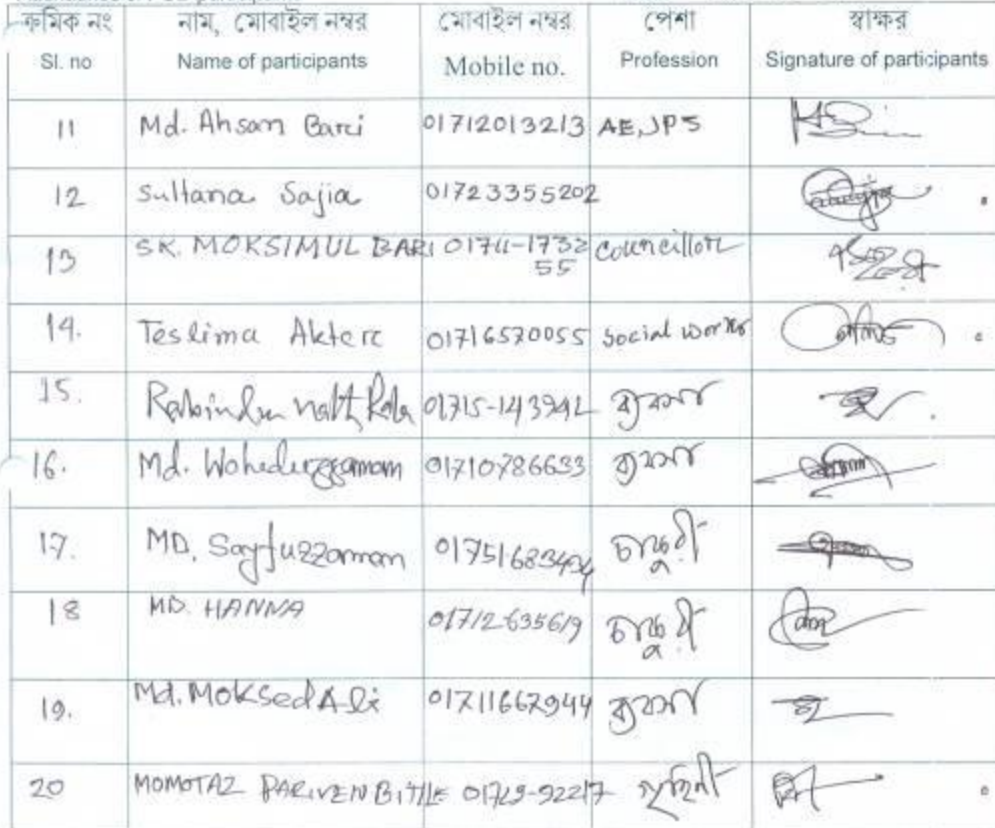 ক্রমিক নং নাম, মোবাইল নম্বর মোবাইল নম্বর পেশা স্বাক্ষর
Sl. no Name of participants Mobile no. Profession Signature of participants
11 Md. Ahsan Bari 01712013213 AE, JPS
12 Sultana Sajia 01723355202
13 SK. MOKSIMUL BARI 01711-1732 Councillor
55
14. Teslima Akter 01716570055 Social worker
15. Rabindra nath 01715-143942 ব্যবসা
16. Md. Woheduzzaman 01710786633 ব্যবসা
17. MD. Sayfuzzaman চাকুরী
18 MD. HANNA 01712-635619 চাকুরী
19. Md. Moksed Ali 01711667944 ব্যবসা
20 MOMOTAZ PARIVEN BITHE 01729-92217 গৃহিনী